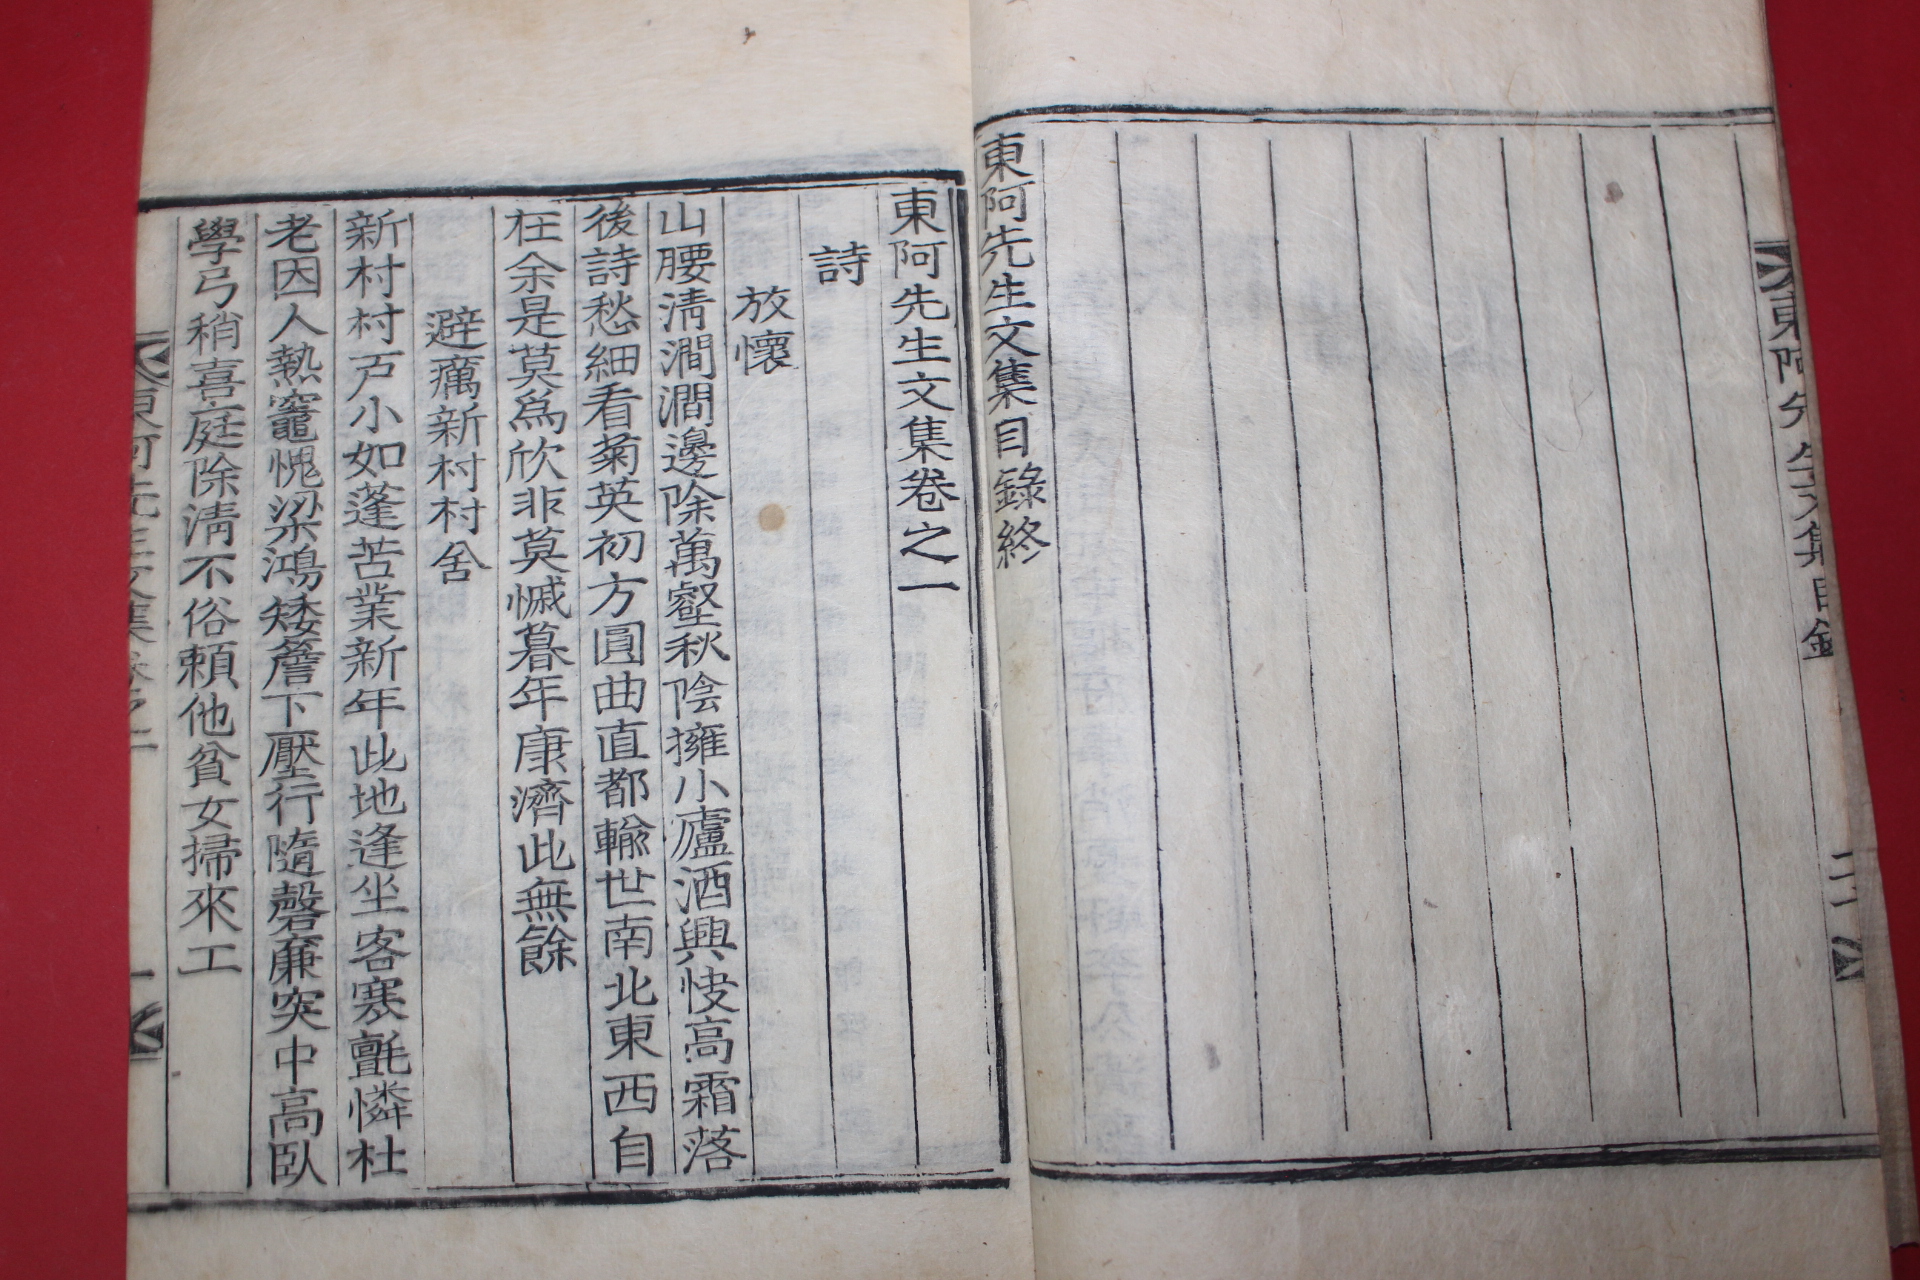 東阿先生文集目錄
二
東阿先生文集目錄終
東阿先生文集卷之一
詩
放懷
山腰淸澗澗邊除萬壑秋陰擁小廬酒興忮高霜落
後詩愁細看菊英初方圓曲直都輸世南北東西自
在余是莫爲欣非莫慽暮年康濟此無餘
避癘新村村舍
新村村戶小如蓬苦業新年此地逢坐客寒氈憐杜
老因人熱竈愧梁鴻矮簷下壓行隨磬廉突中高臥
學弓稍喜庭除淸不俗賴他貧女掃來工
東阿先生文集卷之一
一